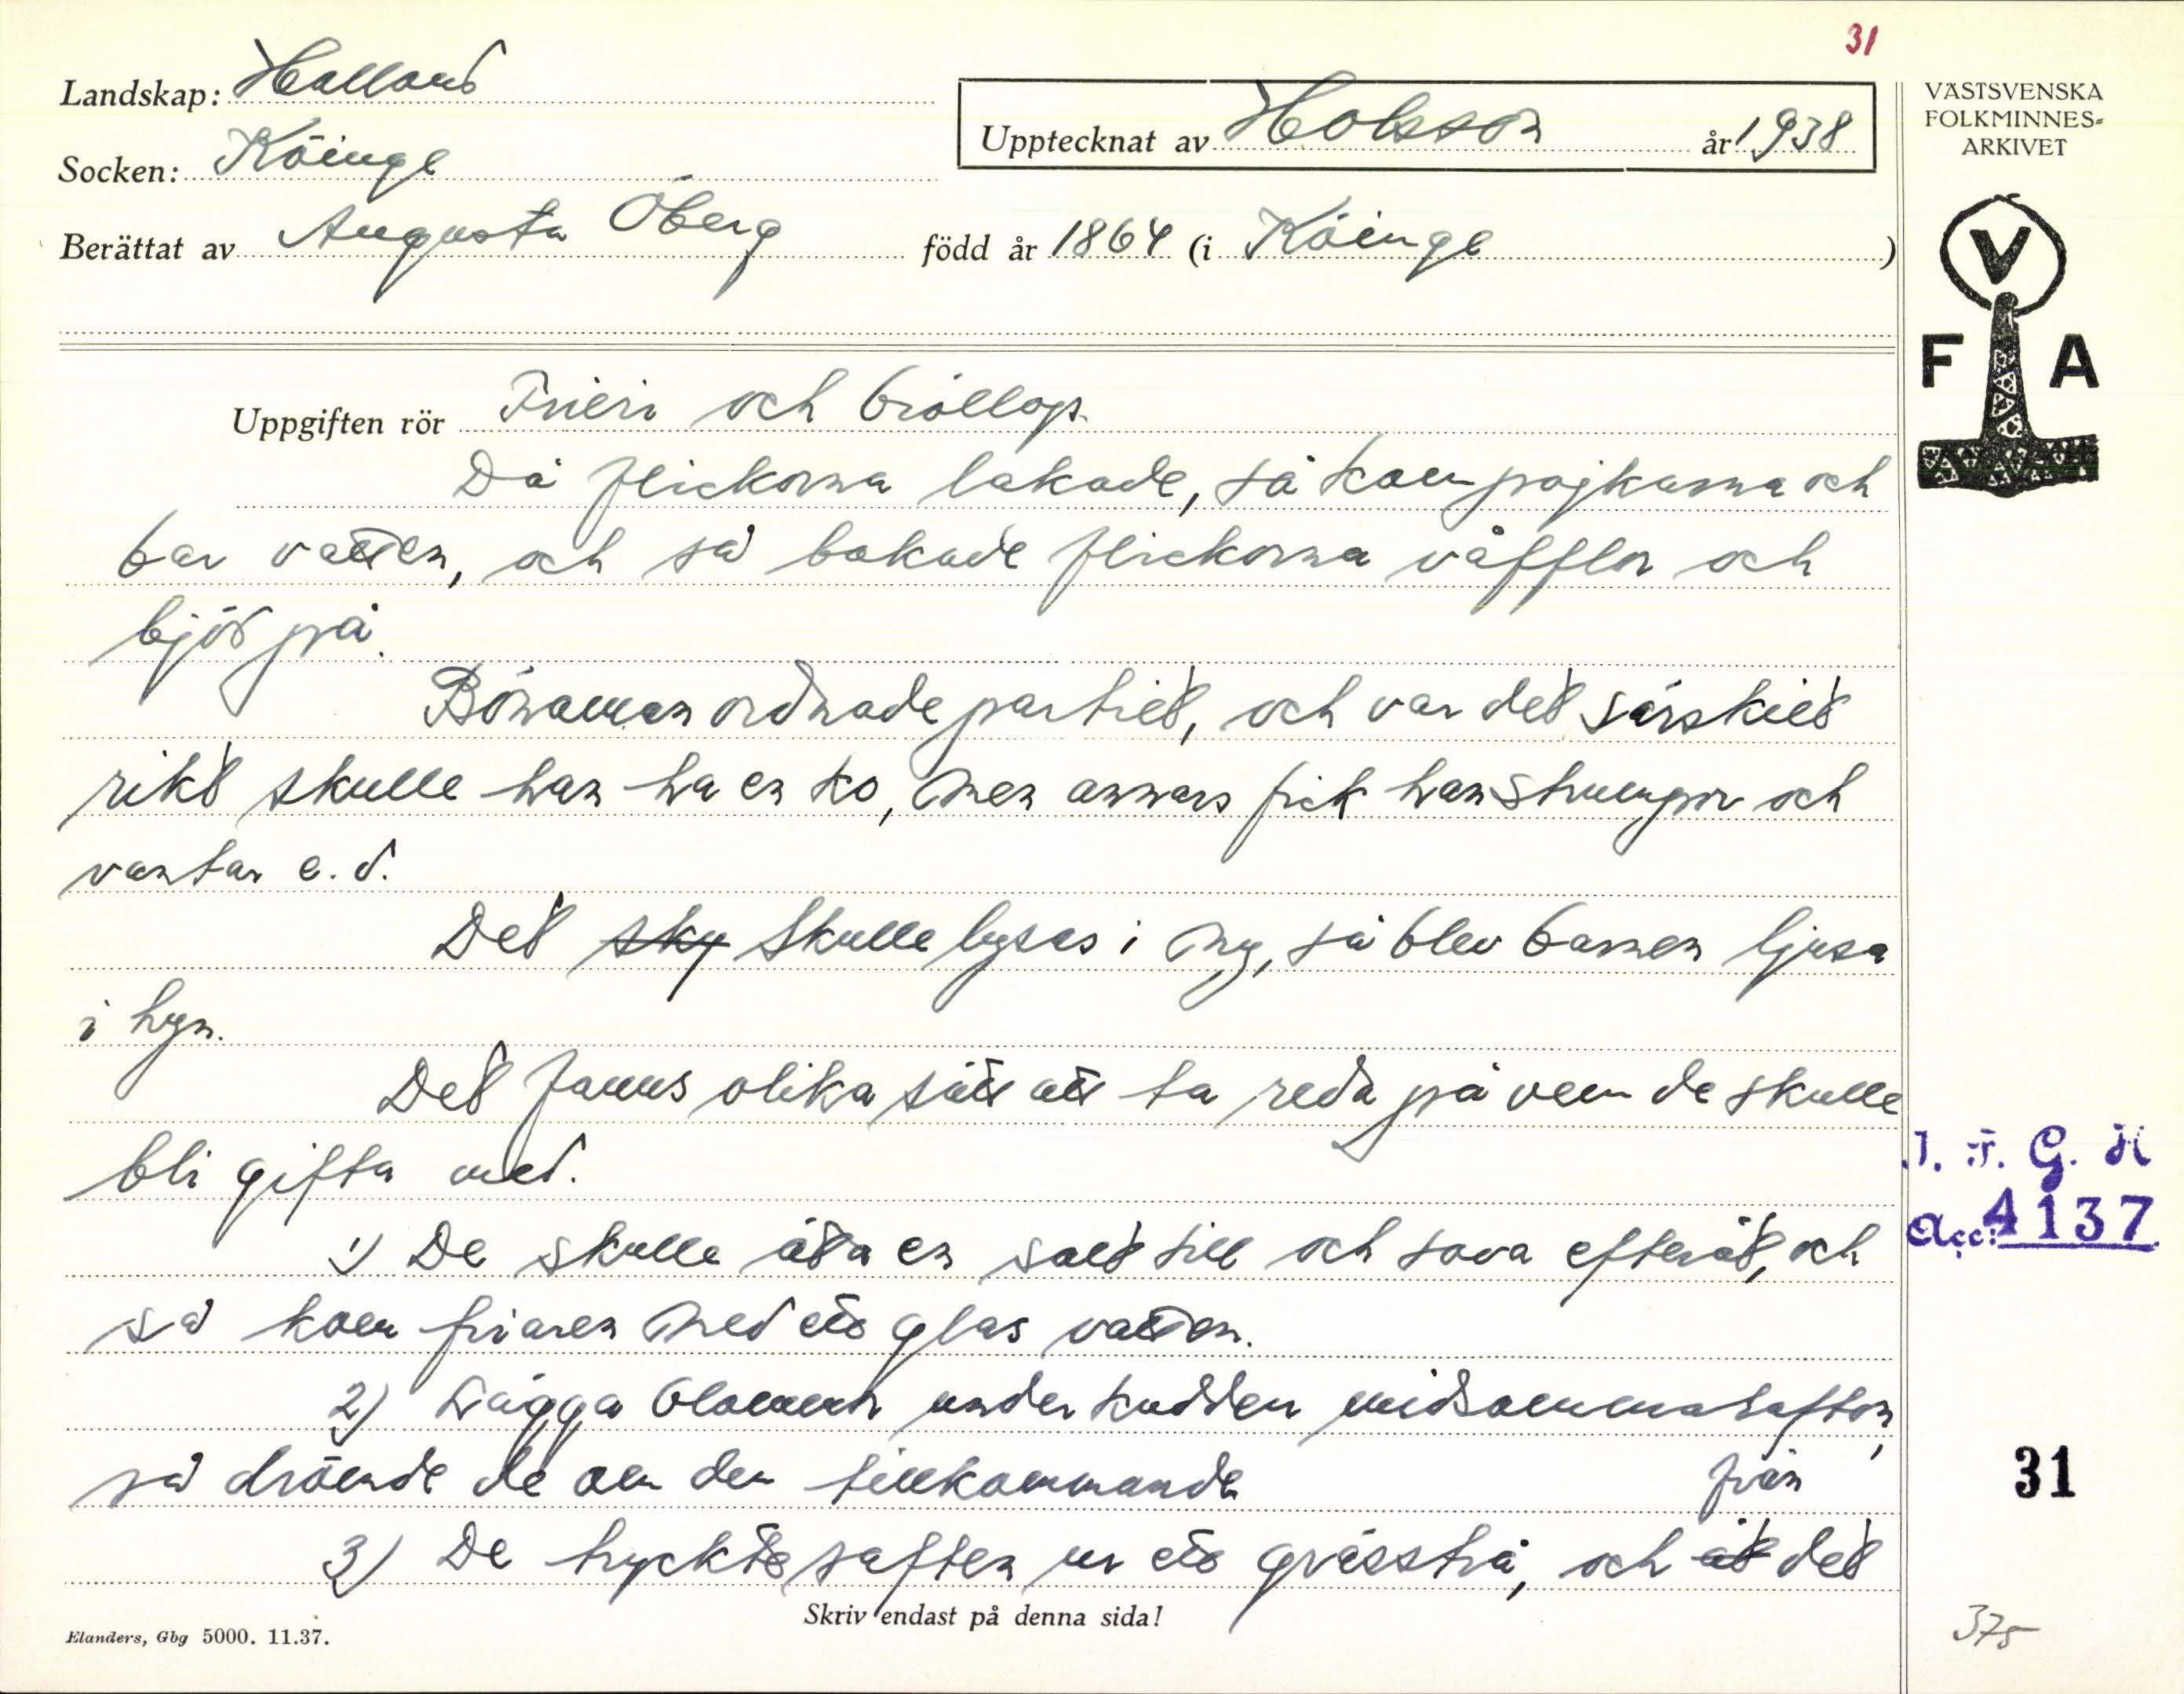 31
Landskap: Halland
Upptecknat av Holsson år 1938
VÄSTSVENSKA
FOLKMINNES-
ARKIVET
Socken: Köinge
Berättat av Augusta Öberg född år 1864 (i Köinge)
V
F A
Uppgiften rör Frieri och bröllop.
Då flickorna bakade, så kom pojkarna och
bar vatten, och så bakade flickorna våfflor och
bjöd på.
Bönaman ordnade partiet, och var det särskilt
rikt skulle han ha en ko, men annars fick han strumpor och
vantar e. d.
Det sky skulle lysas i ny, så blev barnen ljusa
i hyn.
Det fanns olika sätt att ta reda på vem de skulle
bli gifta med.
1) De skulle äta en salt sill och sova efteråt, och
så kom friaren med ett glas vatten.
2) Lägga blommor under kudden midsommarafton,
så drömde de om den tillkommande
från
3) De tryckte saften ur ett grässtrå, och åt det
Skriv endast på denna sida!
Elanders, Gbg 5000. 11.37.
I. F. G. H
Acc: 4137
31
375